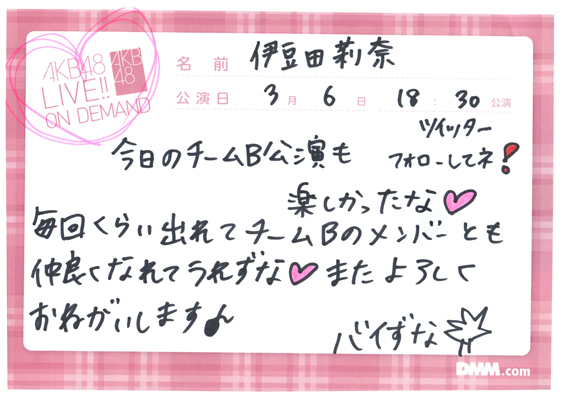 AKB48
LIVE!!
ON DEMAND
AKB
48
名前 伊豆田莉奈
公演日 3月6日 18:30公演
ツイッター
フォローしてネ!
今日のチームB公演も
楽しかったな♥
毎回くらい出れてチームBのメンバーとも
仲良くなれてうれずな♥またよろしく
おねがいします♪
バイずな
DMM.com